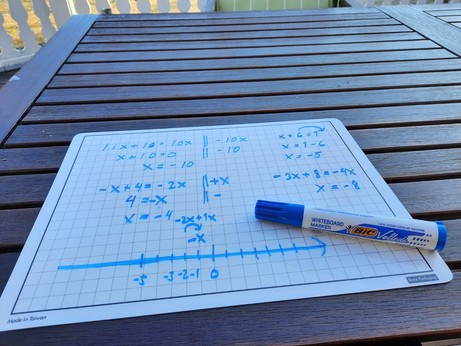 11x+10=10x || -10x
x+10=0 || -10
x=-10
x+6=1
x=1-6
x=-5
-x+4=-2x || +x
4=-x || -
x=-4
-3x+8=-4x
x=-8
-2x+1x
-x
-5 -3 -2 -1 0
WHITEBOARD MARKER
BIC
Velleda
Made in Taiwan